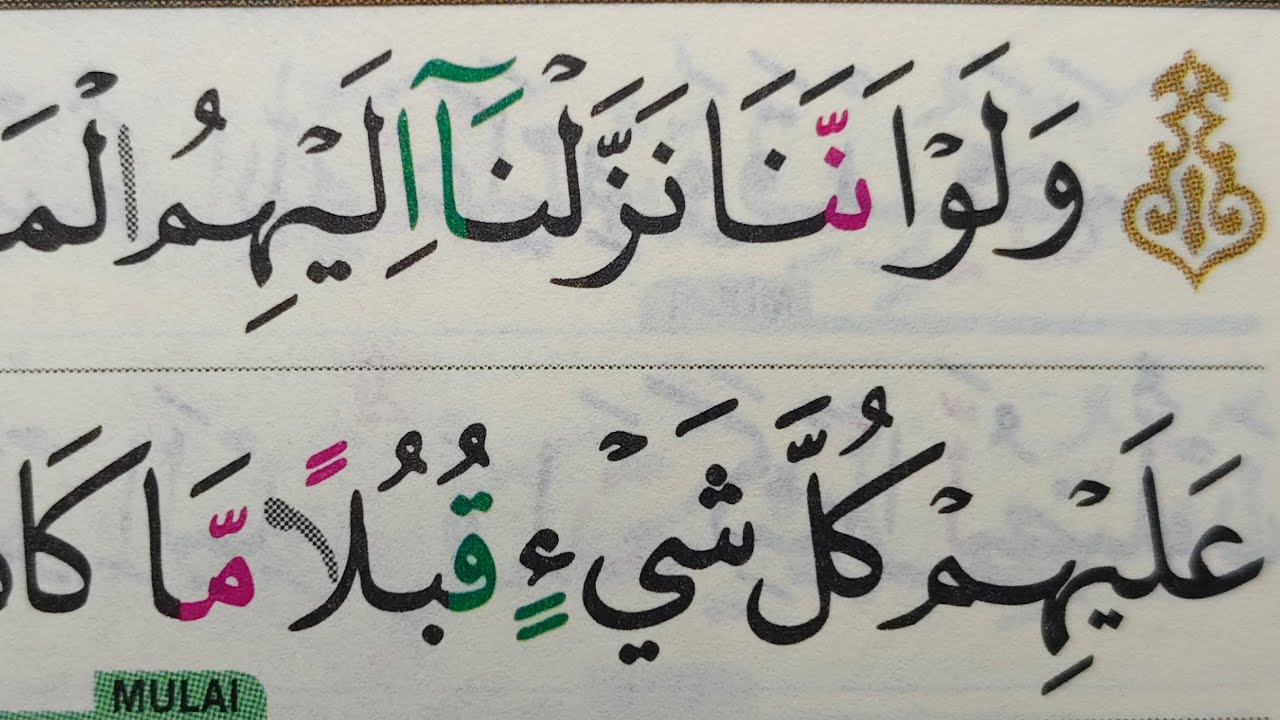 وَلَوْ اَنَّنَا نَزَّلْنَآ اِلَيْهِمُ الْمَ
عَلَيْهِمْ كُلَّ شَيْءٍ قُبُلًا مَّا كَا
MULAI